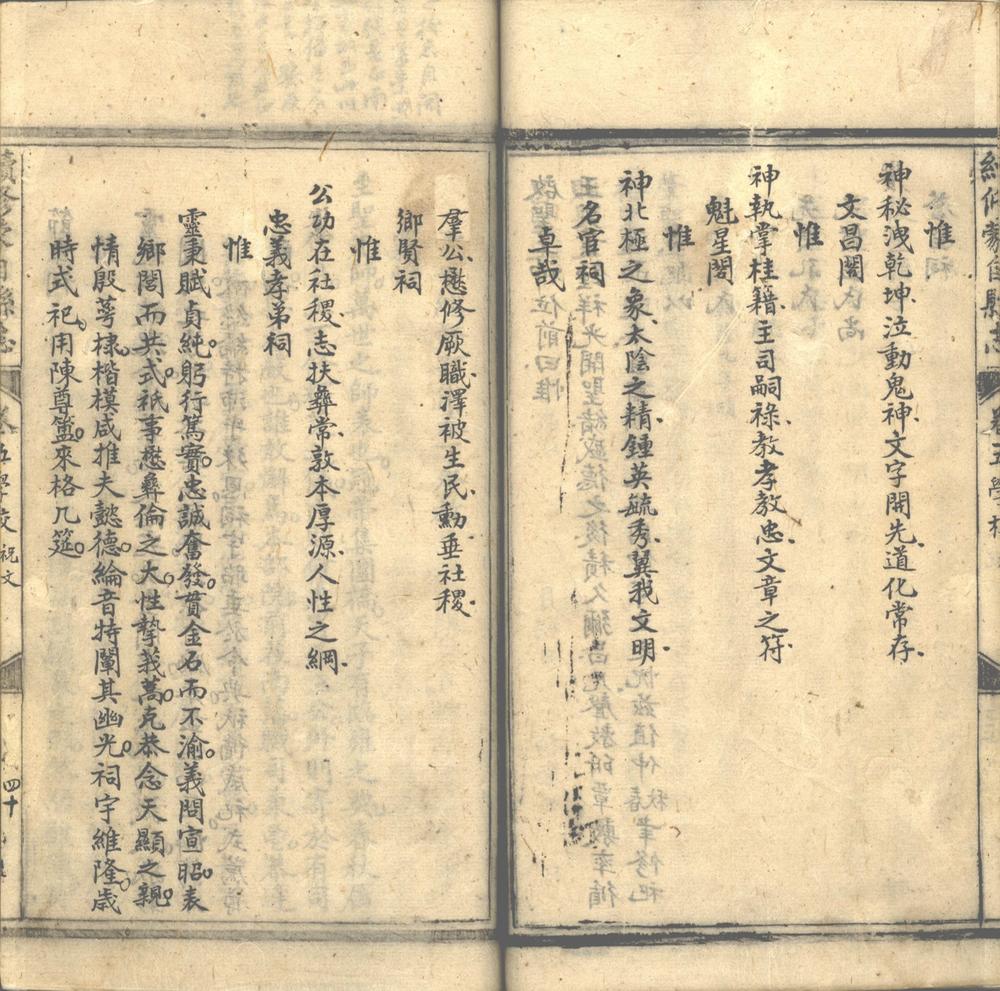 惟
神秘洩乾坤泣動鬼神文字開先道化常存
文昌閣
惟
神執掌桂籍主司嗣祿教孝教忠文章之符
魁星閣
惟
神北極之象太陰之精鍾英毓秀翼我文明
名官祠
卓哉
羣公懋修厥職澤被生民勳垂社稷
鄉賢祠
惟
公功在社稷志扶彝常敦本厚源人性之綱
忠義孝弟祠
惟
靈秉賦貞純躬行篤實忠誠奮發貫金石而不渝義問宣昭表
鄉閭而共式祇事懋彝倫之大性摯莪蒿克恭念天顯之親
情殷萼棣楷模咸推夫懿德綸音特闡其幽光祠宇維隆歲
時式祀用陳尊簋來格几筵
續修蒙自縣志 卷五學校 祝文 四十